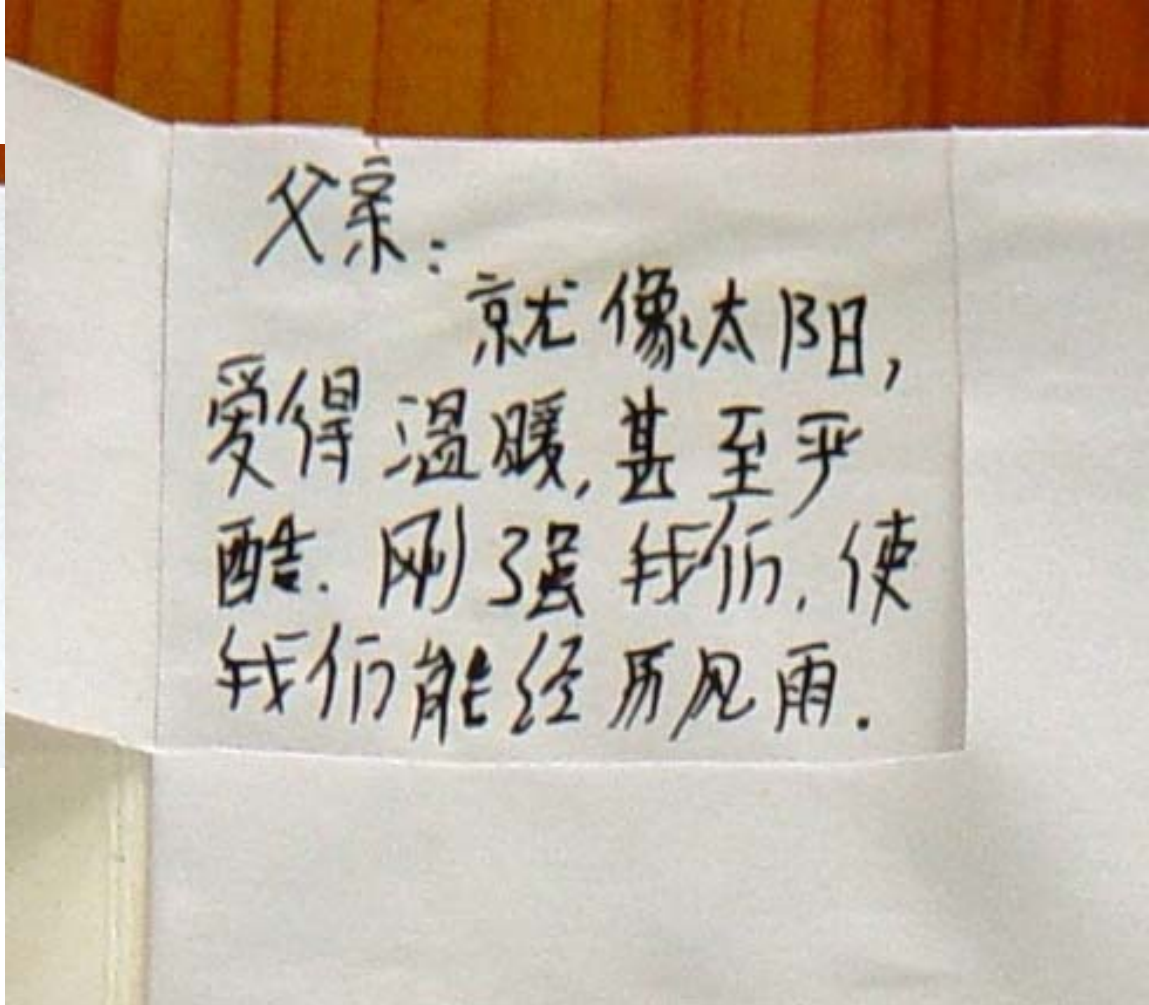 父亲:
就像太阳,
爱得温暖,甚至严
酷.刚强我们,使
我们能经历风雨.